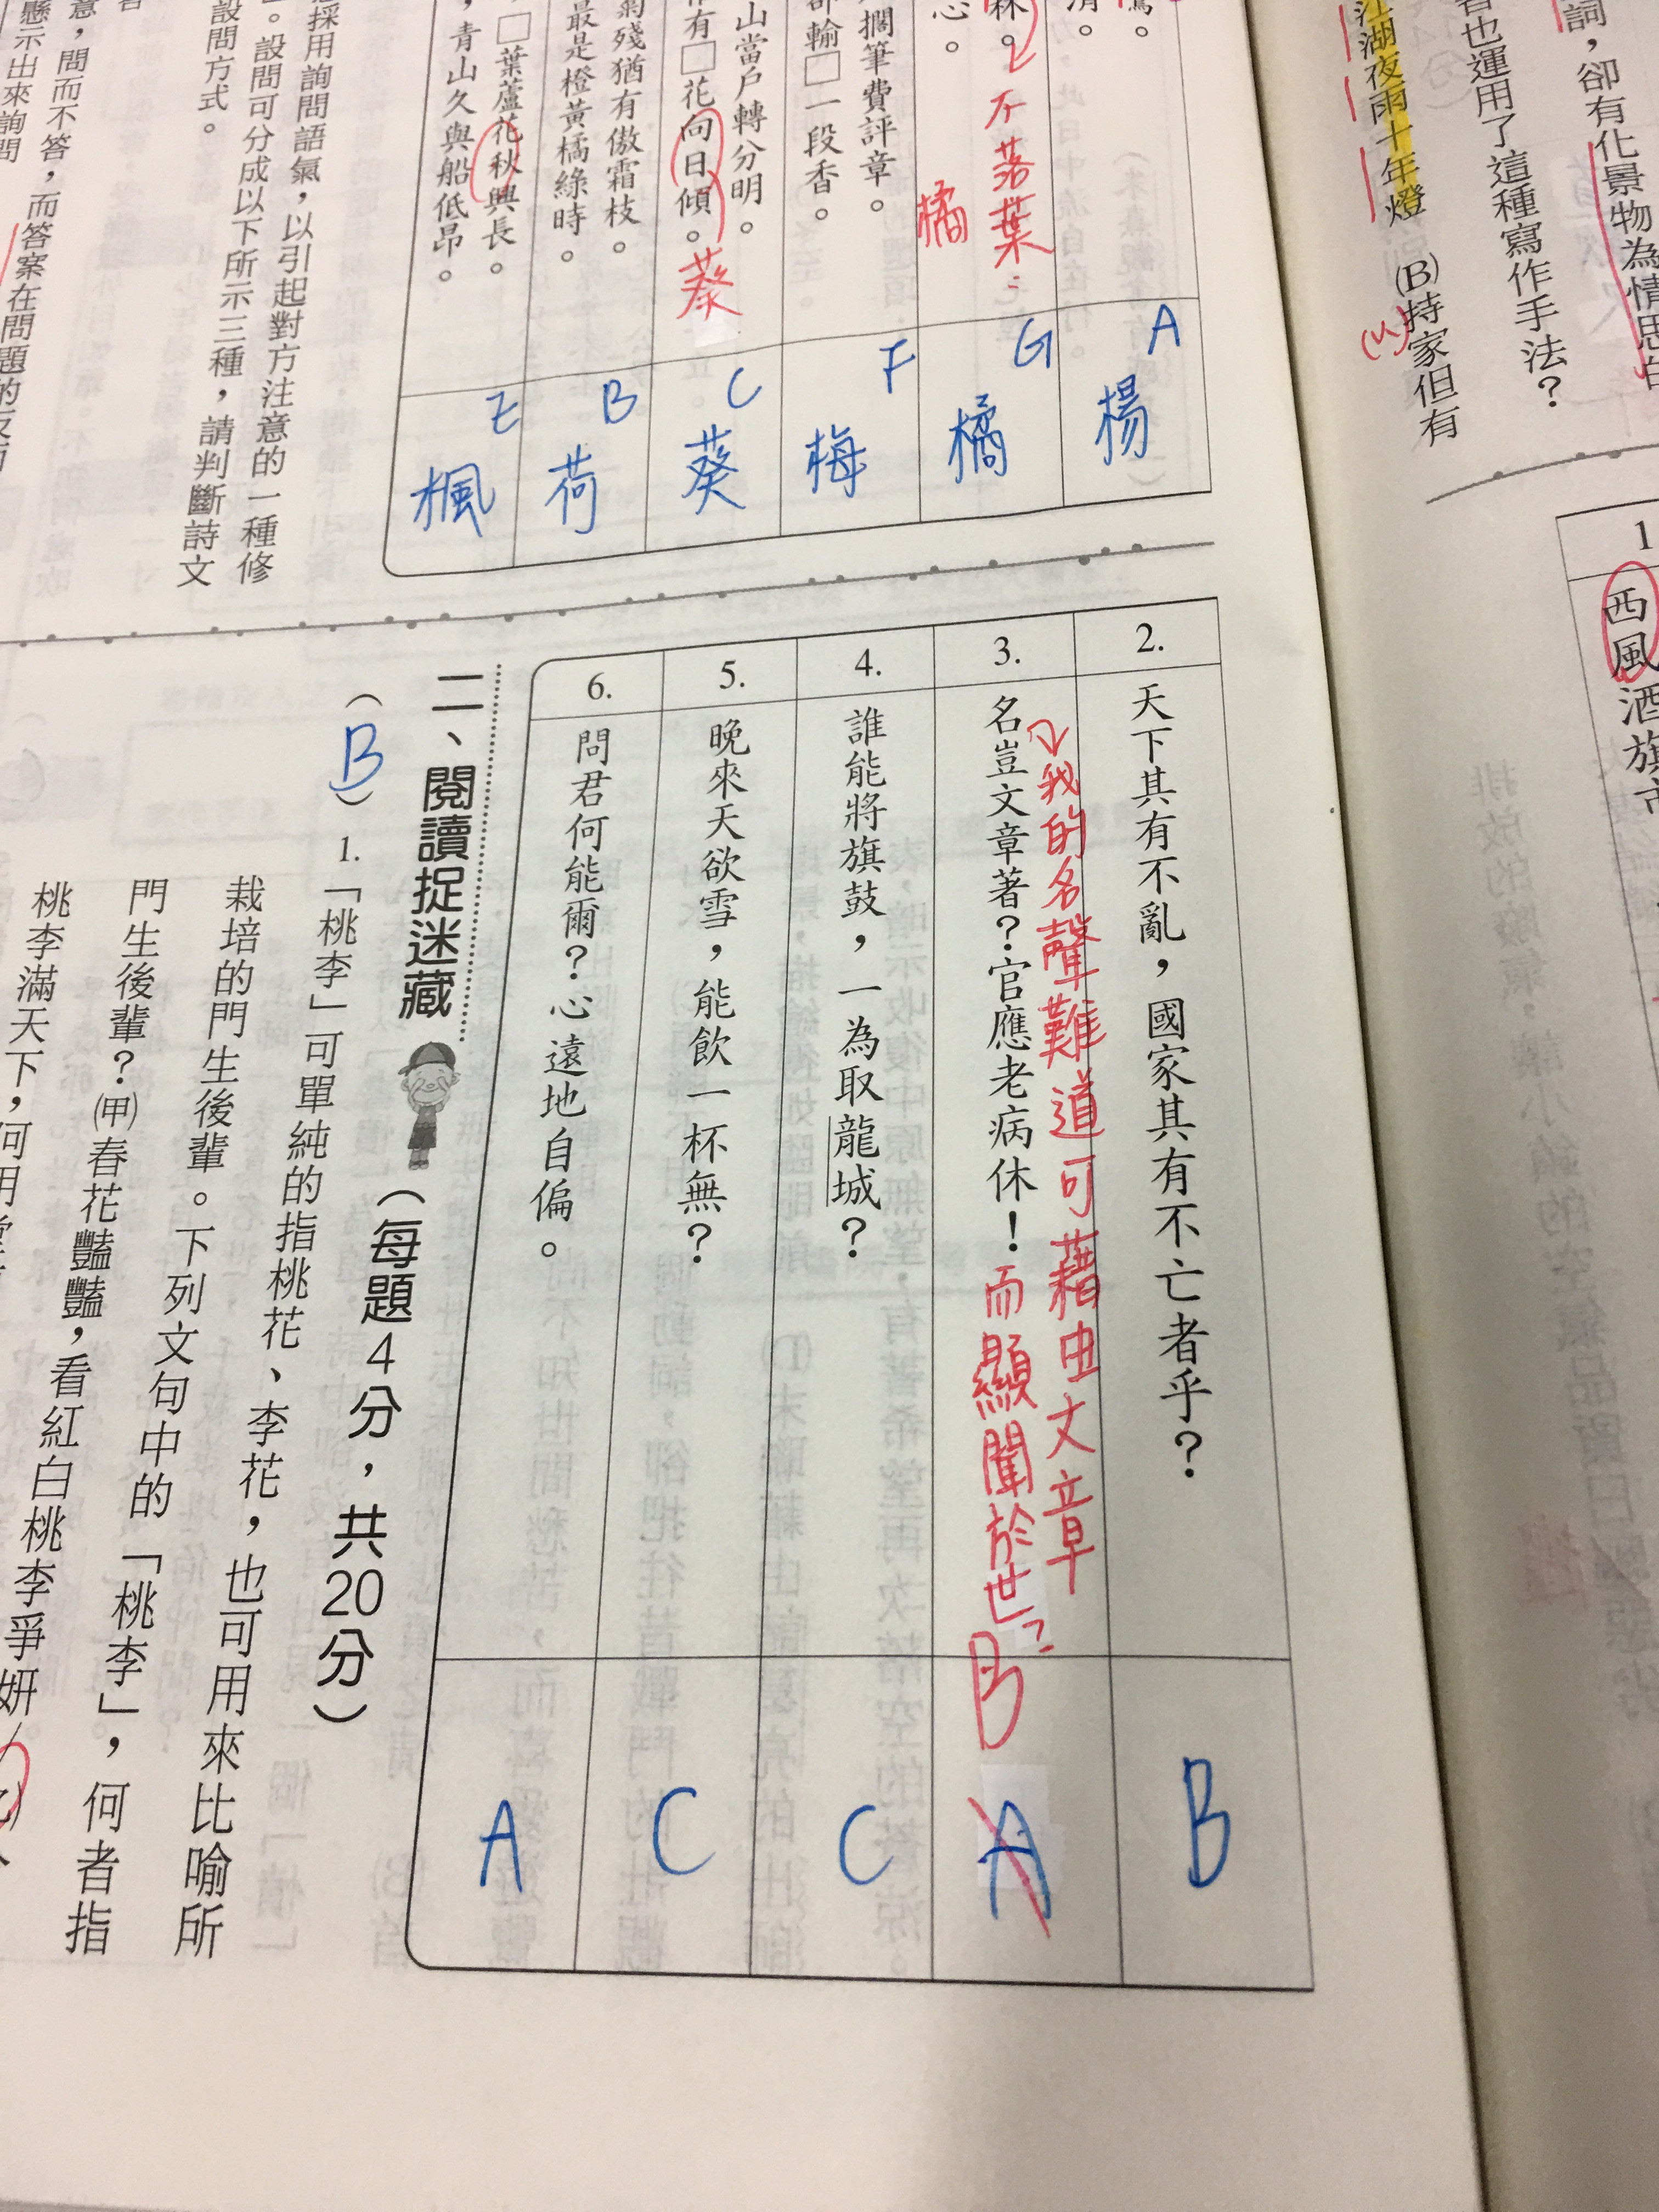 詞，卻有化景物為情思的
者也運用了這種寫作手法？
江湖夜雨十年燈 (B)持家但有
1
西風酒旗市
不落葉
橘
擱筆費評章。
卻輸□一段香。
山當戶轉分明。
有□花向日傾。
葵
殘猶有傲霜枝。
最是橙黃橘綠時。
□葉蘆花秋興長。
，青山久與船低昂。
A
楊
G
橘
F
梅
C
葵
B
荷
E
楓
採用詢問語氣，以引起對方注意的一種修
。設問可分成以下所示三種，請判斷詩文
設問方式。
意，問而不答，而答案在問題的反面
懸示出來詢問
2.
天下其有不亂，國家其有不亡者乎？
B
3.
名豈文章著？官應老病休！
我的名聲難道可藉由文章
而顯聞於世？
B
A
4.
誰能將旗鼓，一為取龍城？
C
5.
晚來天欲雪，能飲一杯無？
C
6.
問君何能爾？心遠地自偏。
A
二、閱讀捉迷藏（每題4分，共20分）
（B）1.「桃李」可單純的指桃花、李花，也可用來比喻所
栽培的門生後輩。下列文句中的「桃李」，何者指
門生後輩？(甲)春花豔豔，看紅白桃李爭妍
桃李滿天下，何用堂